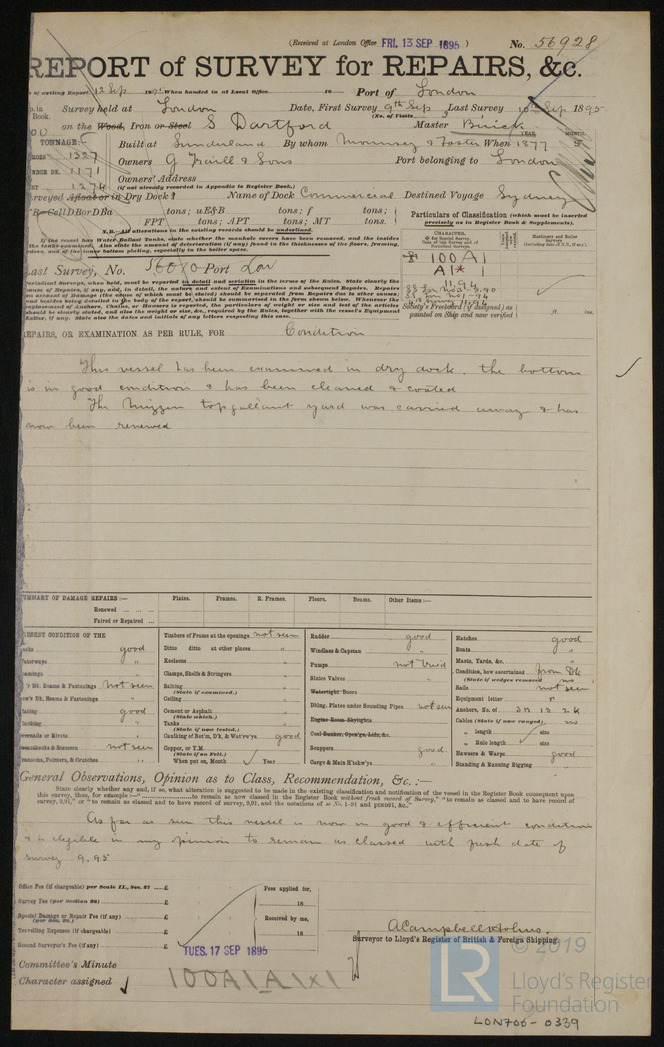 (Received at London Office FRI. 13 SEP 1895) No. 56928
REPORT of SURVEY for REPAIRS, &c.
of writing Report 12 Sep 189 When handed in at Local Office 18 Port of London
Survey held at London Date, First Survey 9th Sep Last Survey 10th Sep 1895
Book. (No. of Visits
on the Wood, Iron or Steel S Dartford Master
TONNAGE: YEAR. MONTH.
Built at Sunderland By whom Mounsey & Foster When 1877
GROSS 1327 Owners G Traill & Sons Port belonging to London
UNDER DK. 1171 Owners' Address
NET 1274 (if not already recorded in Appendix to Register Book.)
Surveyed Afloat or in Dry Dock? Name of Dock Commercial Destined Voyage Sydney
CellDBorDBa tons; uE&B tons; f tons;
FPT tons; APT tons; MT tons.
N.B.—All alterations in the existing records should be underlined.
If the vessel has Water-Ballast Tanks, state whether the manhole covers have been removed, and inside
the tanks examined. Also state the amount of deterioration (if any) found in the thicknesses of the floors, framing,
girders, and of the inner bottom plating, especially in the boiler space.
Particulars of Classification (which must be inserted
precisely as in Register Book & Supplements).
CHARACTER.
100A1
A1*
11,94
Society's Freeboard (if assigned) as
painted on Ship and now verified ft. ins.
Last Survey, No. 56080 Port Lon
Periodical Surveys, when held, must be reported in detail and seriatim in the terms of the Rules. State clearly the
cause of Repairs, if any, and, in detail, the nature and extent of Examinations and subsequent Repairs. Repairs
on account of Damage (the cause of which must be stated) should be separated from Repairs due to other causes;
and besides being detailed in the body of the report, should be summarised in the form shown below. Whenever the
REPAIRS, OR EXAMINATION AS PER RULE, FOR Condition
This vessel has been examined in dry dock, the bottom
is in good condition & has been cleaned & coated
The Mizzen topgallant yard was carried away & has
now been renewed
SUMMARY OF DAMAGE REPAIRS :— Plates. Frames. R. Frames. Floors. Beams. Other Items :—
Renewed
Faired or Repaired
PRESENT CONDITION OF THE
Decks good
Waterways "
Coamings "
Up'r Dk. Beams & Fastenings Not seen
Low'r Dk. Beams & Fastenings "
Plating good
Caulking "
Treenails or Rivets "
Breasthooks & Stemson not seen
Transoms, Pointers, & Crutches "
Timbers of Frame at the openings not seen
Ditto ditto at other places "
Keelsons "
Clamps, Shelfs & Stringers "
Salting (State if examined.) "
Ceiling "
Cement or Asphalt (State which.) "
Tanks (State if now tested.) "
Caulking of Bot'm, D'k, & Wat'rw'ys good
Copper, or Y.M. (State if on Felt.)
When put on, Month Year
Rudder good
Windlass & Capstan "
Pumps not tried
Sluice Valves
Watertight Doors
Dblng. Plates under Sounding Pipes not seen
Engine Room Skylights
Coal Bunker, Open'gs, Lids, &c.
Scuppers good
Cargo & Main H'tchw'ys "
Hatches good
Boats "
Masts, Yards, &c. "
Condition, how ascertained from Dk
(State if wedges removed no
Sails not seen
Equipment letter
Anchors, No. of 3B 1S 2K
Cables (State if now ranged) no
" length size
" Rule length size
Hawsers & Warps good
Standing & Running Rigging "
General Observations, Opinion as to Class, Recommendation, &c. :—
State clearly whether any and, if so, what alteration is suggested to be made in the existing classification and notification of the vessel in the Register Book consequent upon
this survey, thus, for example :—"................to remain as now classed in the Register Book without fresh record of Survey," "to remain as classed and to have record of
survey, 2,91," or "to remain as classed and to have record of survey, 9,91, and the notations of ss No. 1-91 and ptND91, &c."
As far as seen this vessel is now in good & efficient condition
& is eligible in my opinion to remain as classed with fresh date of
survey 9.95
Office Fee (if chargeable) per Scale II., Sec. 27 £ Fees applied for,
Survey Fee (per Section 28) £ 18
Special Damage or Repair Fee (if any) (per Sec. 28.) £ Received by me,
Travelling Expenses (if chargeable) £ 18
Second Surveyor's Fee (if any) £
TUES. 17 SEP 1895
A Campbell Holms.
Surveyor to Lloyd's Register of British & Foreign Shipping.
Committee's Minute
Character assigned 100A1
© 2019
LR
Lloyd's Register
Foundation
LON700-0339